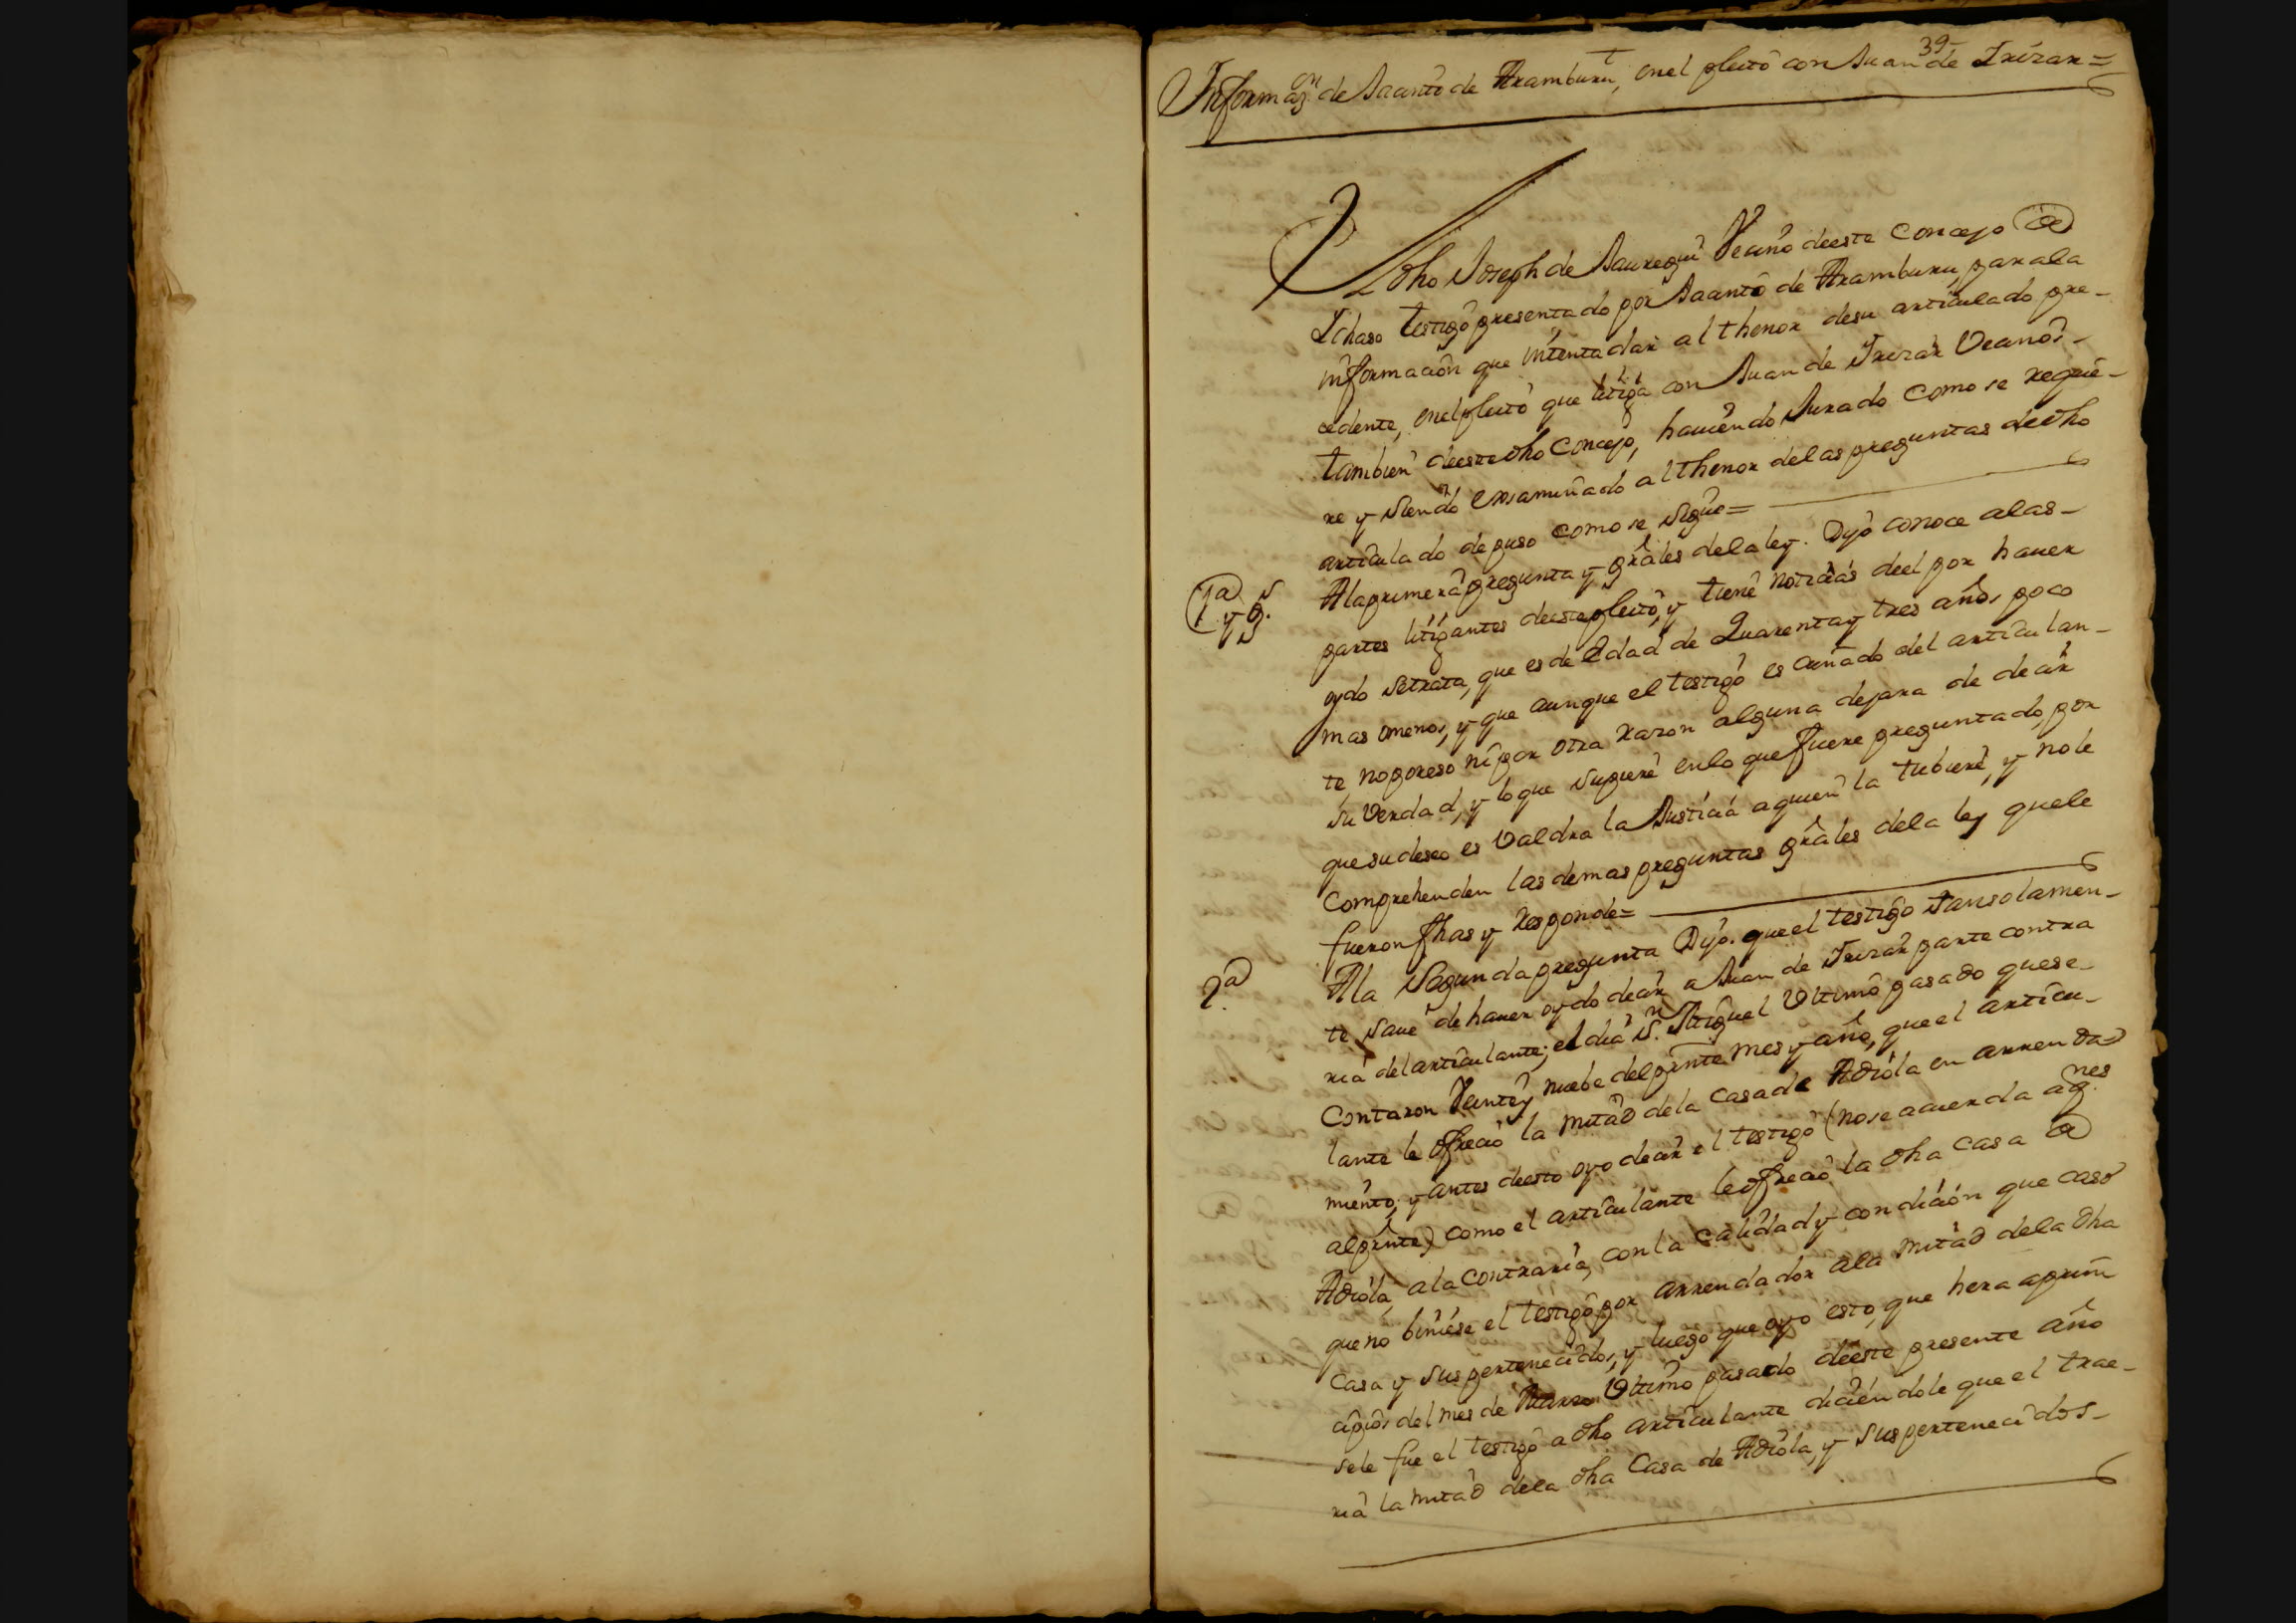 39
Informaçon de Jacinto de Aramburu, en el pleito con Juan de Irizar=
Dho Joseph de Jauregui Vecino de este Concejo de
Ichaso testigo presentado por Jacinto de Aramburu, para la
información que intenta dar al thenor de su articulado pre-
cedente, en el pleito que litiga con Juan de Irizar Vecinos-
tambien de este dho Concejo, haviendo Jurado como se requie-
re y siendo exsaminado al thenor de las preguntas de dho
articulado depuso como se sigue=
1a y gs. A la primera pregunta y grâles de la ley. Dijo conoce a las-
partes litigantes de este pleito, y tiene noticias de el por haver
oydo se trata, que es de edad de Quarenta y tres años, poco
mas omenos, y que aunque el testigo es cuñado del articulan-
te, no por eso ni por otra razon alguna dejara de decir
su Verdad, y lo que supiere en lo que fuere preguntado, por
que su deseo es Valdra la Justicia a quien la tubiere, y no le
Comprehenden las demas preguntas grâles de la ley que le
fueron fhas y Responde=
2a A la Segunda pregunta Dijo. que el testigo tan solamen-
te save de haver oydo decir a Juan de Irizar parte contra
ria del articulante; el dia Sn. Miguel Vltimo pasado que se-
Contaron Veinte y nuebe del presnte mes y año, que el articu-
lante le ofrecio la mitad de la casa de Adiola en arrenda-
miento, y antes de esto oyo decir el testigo (no se acuerda a qnes
al presnte) como el articulante le ofrecio la dha casa de
Adiola, a la contraria, con la calidad y condición que caso
que no biniese el testigo por arrendador a la mitad de la dha
Casa y sus pertenecidos, y luego que oyo esto, que hera a prin
cipios del mes de Marzo Vltimo pasado de este presente año
se le fue el testigo a dho articulante diciéndole que el trae-
ria la mitad de la dha Casa de Adiola, y sus pertenecidos-